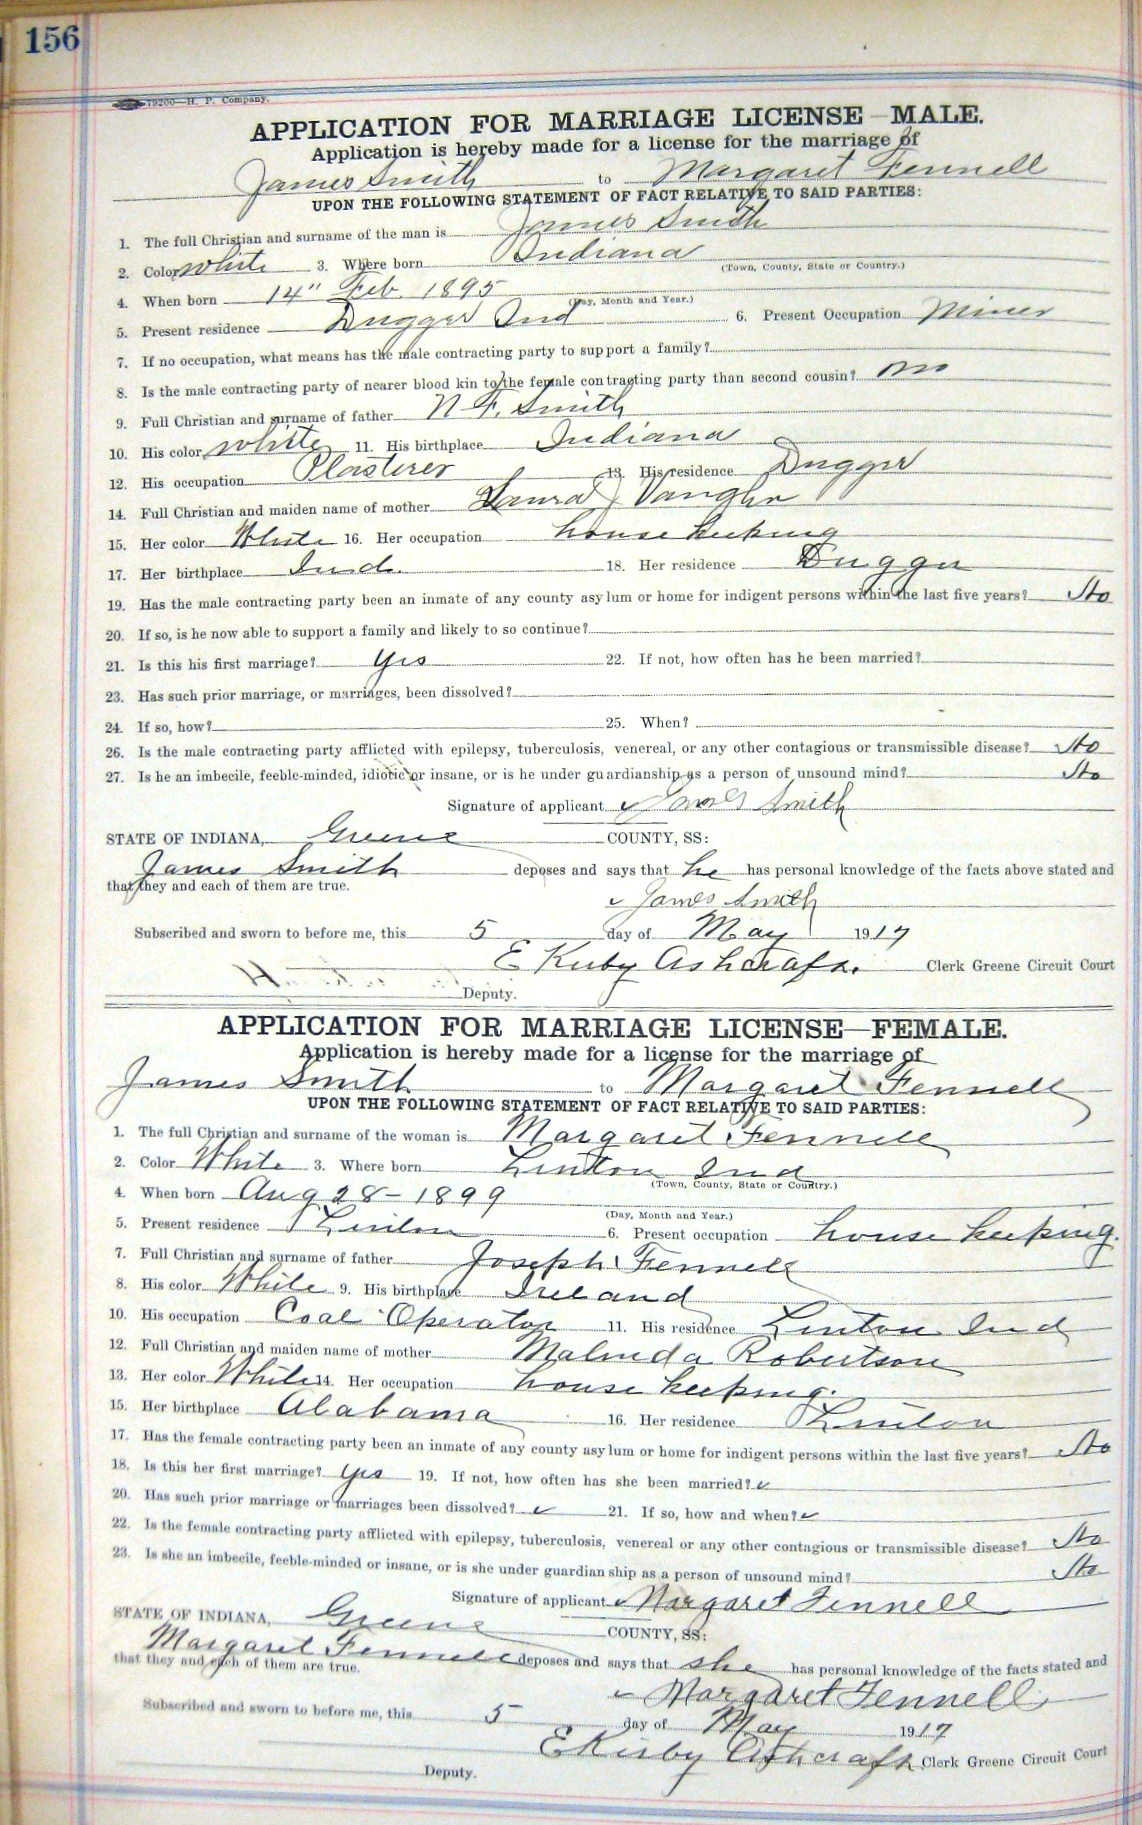 156
79200—H. P. Company.
APPLICATION FOR MARRIAGE LICENSE—MALE.
Application is hereby made for a license for the marriage of
James Smith to Margaret Fennell
UPON THE FOLLOWING STATEMENT OF FACT RELATIVE TO SAID PARTIES:
1. The full Christian and surname of the man is James Smith
2. Color White 3. Where born Indiana
(Town, County, State or Country.)
4. When born 14" Feb. 1895
(Day, Month and Year.)
5. Present residence Dugger Ind 6. Present Occupation Miner
7. If no occupation, what means has the male contracting party to support a family?
8. Is the male contracting party of nearer blood kin to the female contracting party than second cousin? no
9. Full Christian and surname of father N. F. Smith
10. His color white 11. His birthplace Indiana
12. His occupation Plasterer 13. His residence Dugger
14. Full Christian and maiden name of mother Laura J Vaughn
15. Her color White 16. Her occupation house keeping
17. Her birthplace Ind. 18. Her residence Dugger
19. Has the male contracting party been an inmate of any county asylum or home for indigent persons within the last five years? No
20. If so, is he now able to support a family and likely to so continue?
21. Is this his first marriage? Yes 22. If not, how often has he been married?
23. Has such prior marriage, or marriages, been dissolved?
24. If so, how? 25. When?
26. Is the male contracting party afflicted with epilepsy, tuberculosis, venereal, or any other contagious or transmissible disease? No
27. Is he an imbecile, feeble-minded, idiotic or insane, or is he under guardianship as a person of unsound mind? No
Signature of applicant James Smith
STATE OF INDIANA, Greene COUNTY, SS:
James Smith deposes and says that he has personal knowledge of the facts above stated and
that they and each of them are true.
James Smith
Subscribed and sworn to before me, this 5 day of May 1917
E Kirby Ashcraft. Clerk Greene Circuit Court
Deputy.
APPLICATION FOR MARRIAGE LICENSE—FEMALE.
Application is hereby made for a license for the marriage of
James Smith to Margaret Fennell
UPON THE FOLLOWING STATEMENT OF FACT RELATIVE TO SAID PARTIES:
1. The full Christian and surname of the woman is Margaret Fennell
2. Color White 3. Where born Linton Ind
(Town, County, State or Country.)
4. When born Aug 28 - 1899
(Day, Month and Year.)
5. Present residence Linton 6. Present occupation house keeping.
7. Full Christian and surname of father Joseph Fennell
8. His color White 9. His birthplace Ireland
10. His occupation Coal Operator 11. His residence Linton Ind
12. Full Christian and maiden name of mother Malinda Robertson
13. Her color White 14. Her occupation house keeping.
15. Her birthplace Alabama 16. Her residence Linton
17. Has the female contracting party been an inmate of any county asylum or home for indigent persons within the last five years? No
18. Is this her first marriage? Yes 19. If not, how often has she been married? ✓
20. Has such prior marriage or marriages been dissolved? ✓ 21. If so, how and when? ✓
22. Is the female contracting party afflicted with epilepsy, tuberculosis, venereal or any other contagious or transmissible disease? No
23. Is she an imbecile, feeble-minded or insane, or is she under guardianship as a person of unsound mind? No
Signature of applicant Margaret Fennell
STATE OF INDIANA, Greene COUNTY, SS:
Margaret Fennell deposes and says that she has personal knowledge of the facts stated and
that they and each of them are true.
Margaret Fennell
Subscribed and sworn to before me, this 5 day of May 1917
E Kirby Ashcraft Clerk Greene Circuit Court
Deputy.